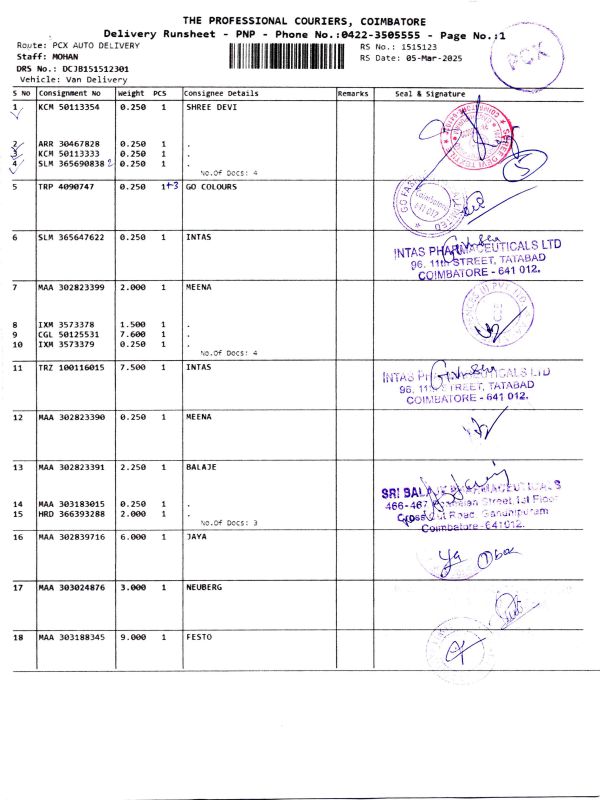 THE PROFESSIONAL COURIERS, COIMBATORE
Delivery Runsheet - PNP - Phone No.:0422-3505555 - Page No.:1
Route: PCX AUTO DELIVERY
RS No.: 1515123
Staff: MOHAN
RS Date: 05-Mar-2025
DRS No.: DCJB151512301
Vehicle: Van Delivery
PCX
S No Consignment No Weight PCS Consignee Details Remarks Seal & Signature
1 KCM 50113354 0.250 1 SHREE DEVI
2 ARR 30467828 0.250 1 .
3 KCM 50113333 0.250 1 .
4 SLM 365690838 2 0.250 1 .
No.Of Docs: 4
5
5 TRP 4090747 0.250 1+3 GO COLOURS
GO FAS
Coimbatore
641 012
6 SLM 365647622 0.250 1 INTAS
INTAS PHARMACEUTICALS LTD
96, 11th STREET, TATABAD
COIMBATORE - 641 012.
7 MAA 302823399 2.000 1 MEENA
8 IXM 3573378 1.500 1 .
9 CGL 50125531 7.600 1 .
10 IXM 3573379 0.250 1 .
No.Of Docs: 4
11 TRZ 100116015 7.500 1 INTAS
INTAS PHARMACEUTICALS LTD
96, 11th STREET, TATABAD
COIMBATORE - 641 012.
12 MAA 302823390 0.250 1 MEENA
13 MAA 302823391 2.250 1 BALAJE
14 MAA 303183015 0.250 1 .
15 HRD 366393288 2.000 1 .
No.Of Docs: 3
SRI BALAJE PHARMACEUTICALS
466-467 Street, 1st Floor
Cross Cut Road, Gandhipuram
Coimbatore-641012.
16 MAA 302839716 6.000 1 JAYA
17 MAA 303024876 3.000 1 NEUBERG
18 MAA 303188345 9.000 1 FESTO